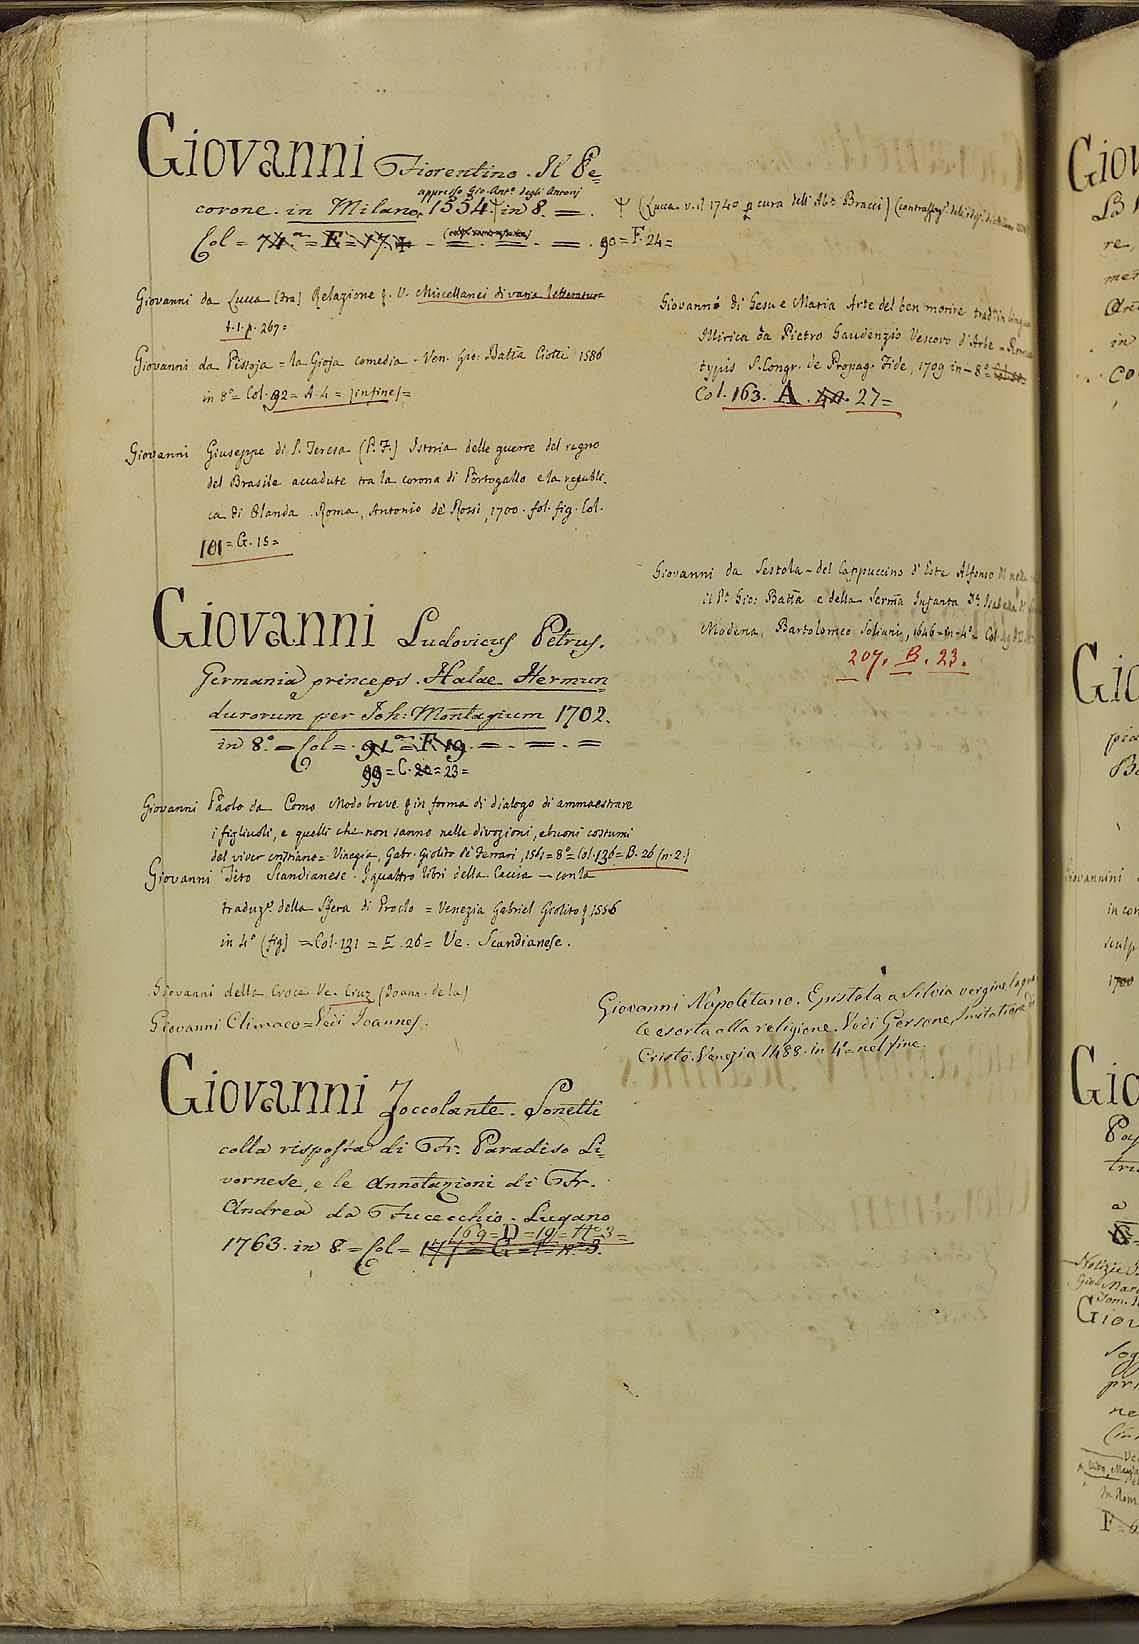 Giovanni Fiorentino. Il Pe=
appresso Gio. Ant.º degli Antonj
corone. in Milano, 1554. in 8. = .
Col = 74
90 = F. 24 =
(Lucca v. il 1740 p cura dell' Ab.e Bracci)
Giovanni da Lucca (Fra) Relazione &. V. Miscellanei di varia letteratura
t. 1. p. 267 =
Giovanni da Pistoja = la Gioja comedia - Ven. Gio: Batta Ciotti 1586
in 8º = Col. 92 = A. 4 = (in fine) =
Giovanni Giuseppe di S. Teresa (P. F.) Istoria delle guerre del regno
del Brasile accadute tra la corona di Portogallo e la republi-
ca di Olanda. Roma, Antonio de Rossi, 1700. fol. fig. Col.
101 = G. 15 =
Giovanni Ludovicus Petrus.
Germania princeps. Halae Hermun=
durorum per Joh: Montagium 1702.
in 8.º = Col = . 91 = F 19. = . = . =
99 = C. 20 = 23 =
Giovanni Paolo da Como Modo breve & in forma di dialogo di ammaestrare
i figliuoli, e quelli che non sanno nelle divozioni, e buoni costumi
del viver cristiano = Vinegia, Gabr. Giolito de Ferrari, 1561 = 8º = Col. 136 = B. 26 (n. 2.)
Giovanni Tito Scandianese. I quattro libri della Caccia - con la
traduz.e della Sfera di Proclo = Venezia Gabriel Giolito & 1556
in 4º (fig) = Col. 131 = E. 26 = Ve. Scandianese.
Giovanni della Croce Ve. Cruz (Joann. de la)
Giovanni Climaco = Vedi Joannes.
Giovanni Zoccolante. Sonetti
colla risposta di Fr. Paradiso Li=
vornese, e le Annotazioni di Fr.
Andrea da Fucecchio. Lugano
169 = D = 19 = Nº 3 =
1763. in 8. = Col = 177 = G = 1 = nº 3.
Giovanni di Gesu e Maria Arte del ben morire trad.ta in lingua
Illirica da Pietro Gaudenzio Vescovo d'Arbe - Romae
typis S. Congr. de Propag. Fide, 1709 in - 8º =
Col. 163. A. 40. 27 =
Giovanni da Sestola - del Cappuccino d'Este Alfonso III
il P. Gio: Batta e della Serma Infanta Isabella
Modena, Bartolomeo Soliani, 1646 = in - 4º = Col.
207. B. 23.
Giovanni Napoletano. Epistola a Silvia vergine
le esorta alla religione. Vedi Gersone, Imitatione di
Cristo. Venezia 1488. in 4º = nel fine.
Giov
re,
in
Co
Gio
Giovannini
in con
sculp
1700
Gio
Notizie
Giov
F =